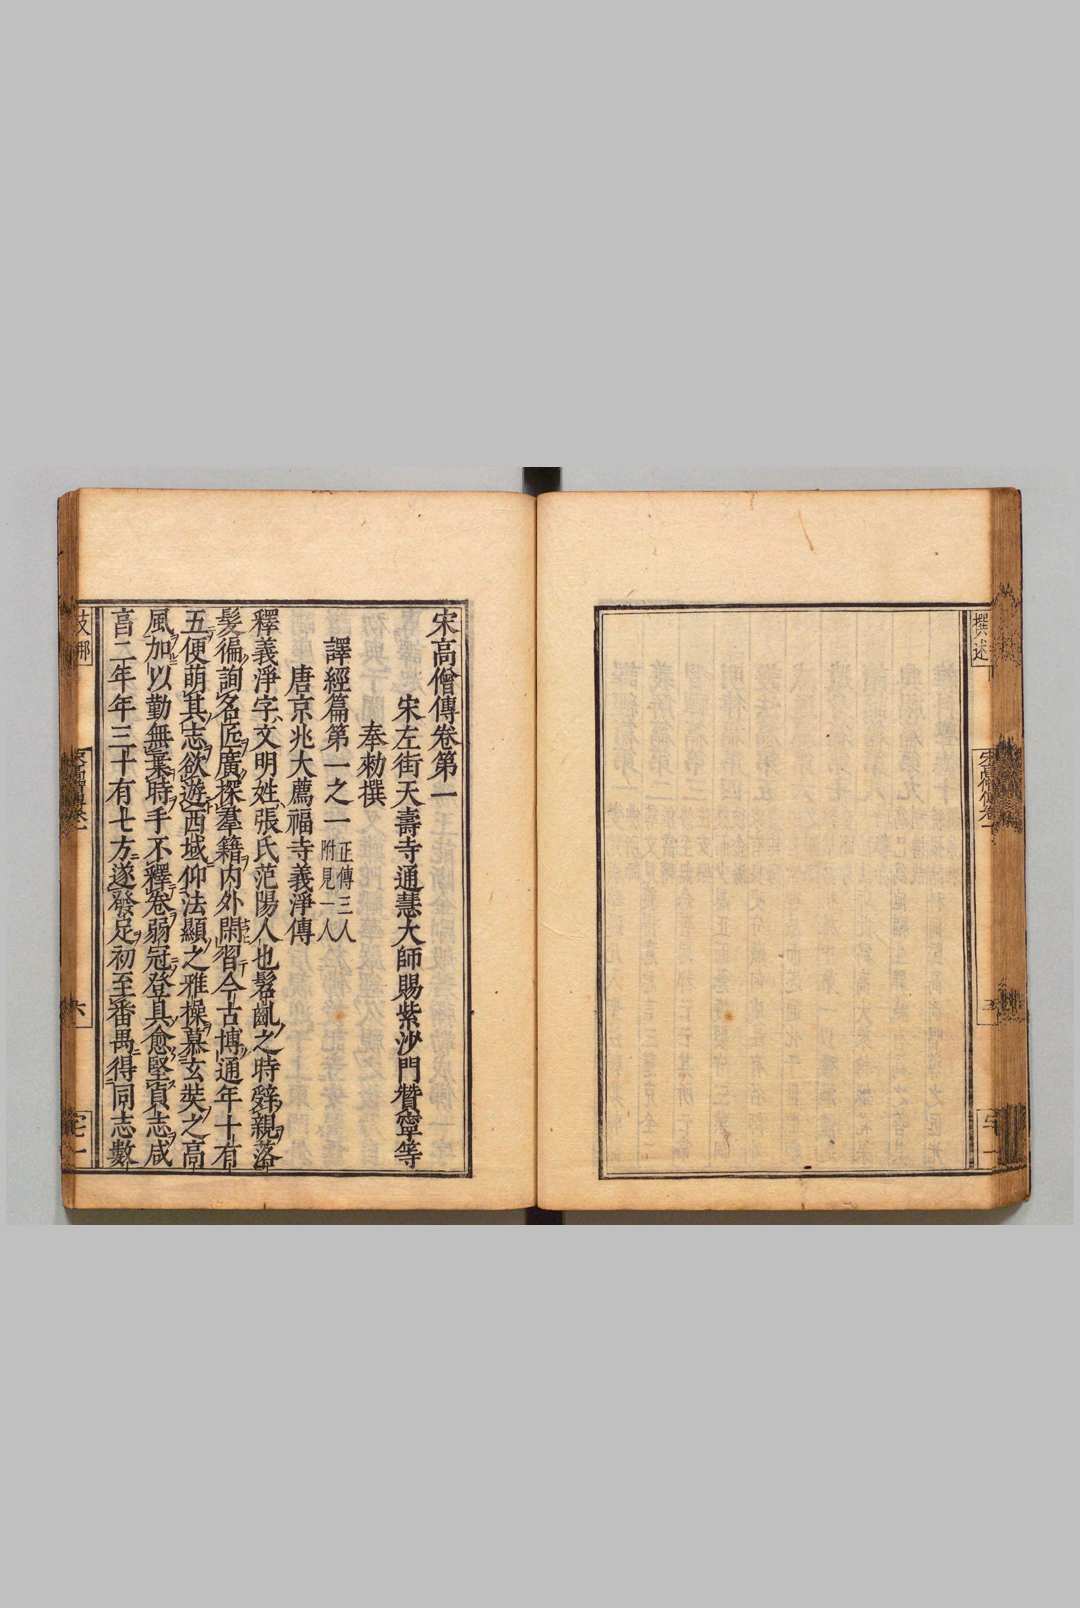 撰述
宋高僧傳卷一
宋高僧傳卷第一
宋左街天壽寺通慧大師賜紫沙門贊寧等
奉勅撰
譯經篇第一之一
正傳三人
附見一人
唐京兆大薦福寺義淨傳
釋義淨字文明姓張氏范陽人也髫齔之時辭親落
髮徧詢名匠廣探羣籍内外閑習今古博通年十有
五便萌其志欲遊西域仰法顯之雅操慕玄奘之高
風加以勤無棄時手不釋卷弱冠登具愈堅貞志咸
亨二年年三十有七方遂發足初至番禺得同志數
支那
六